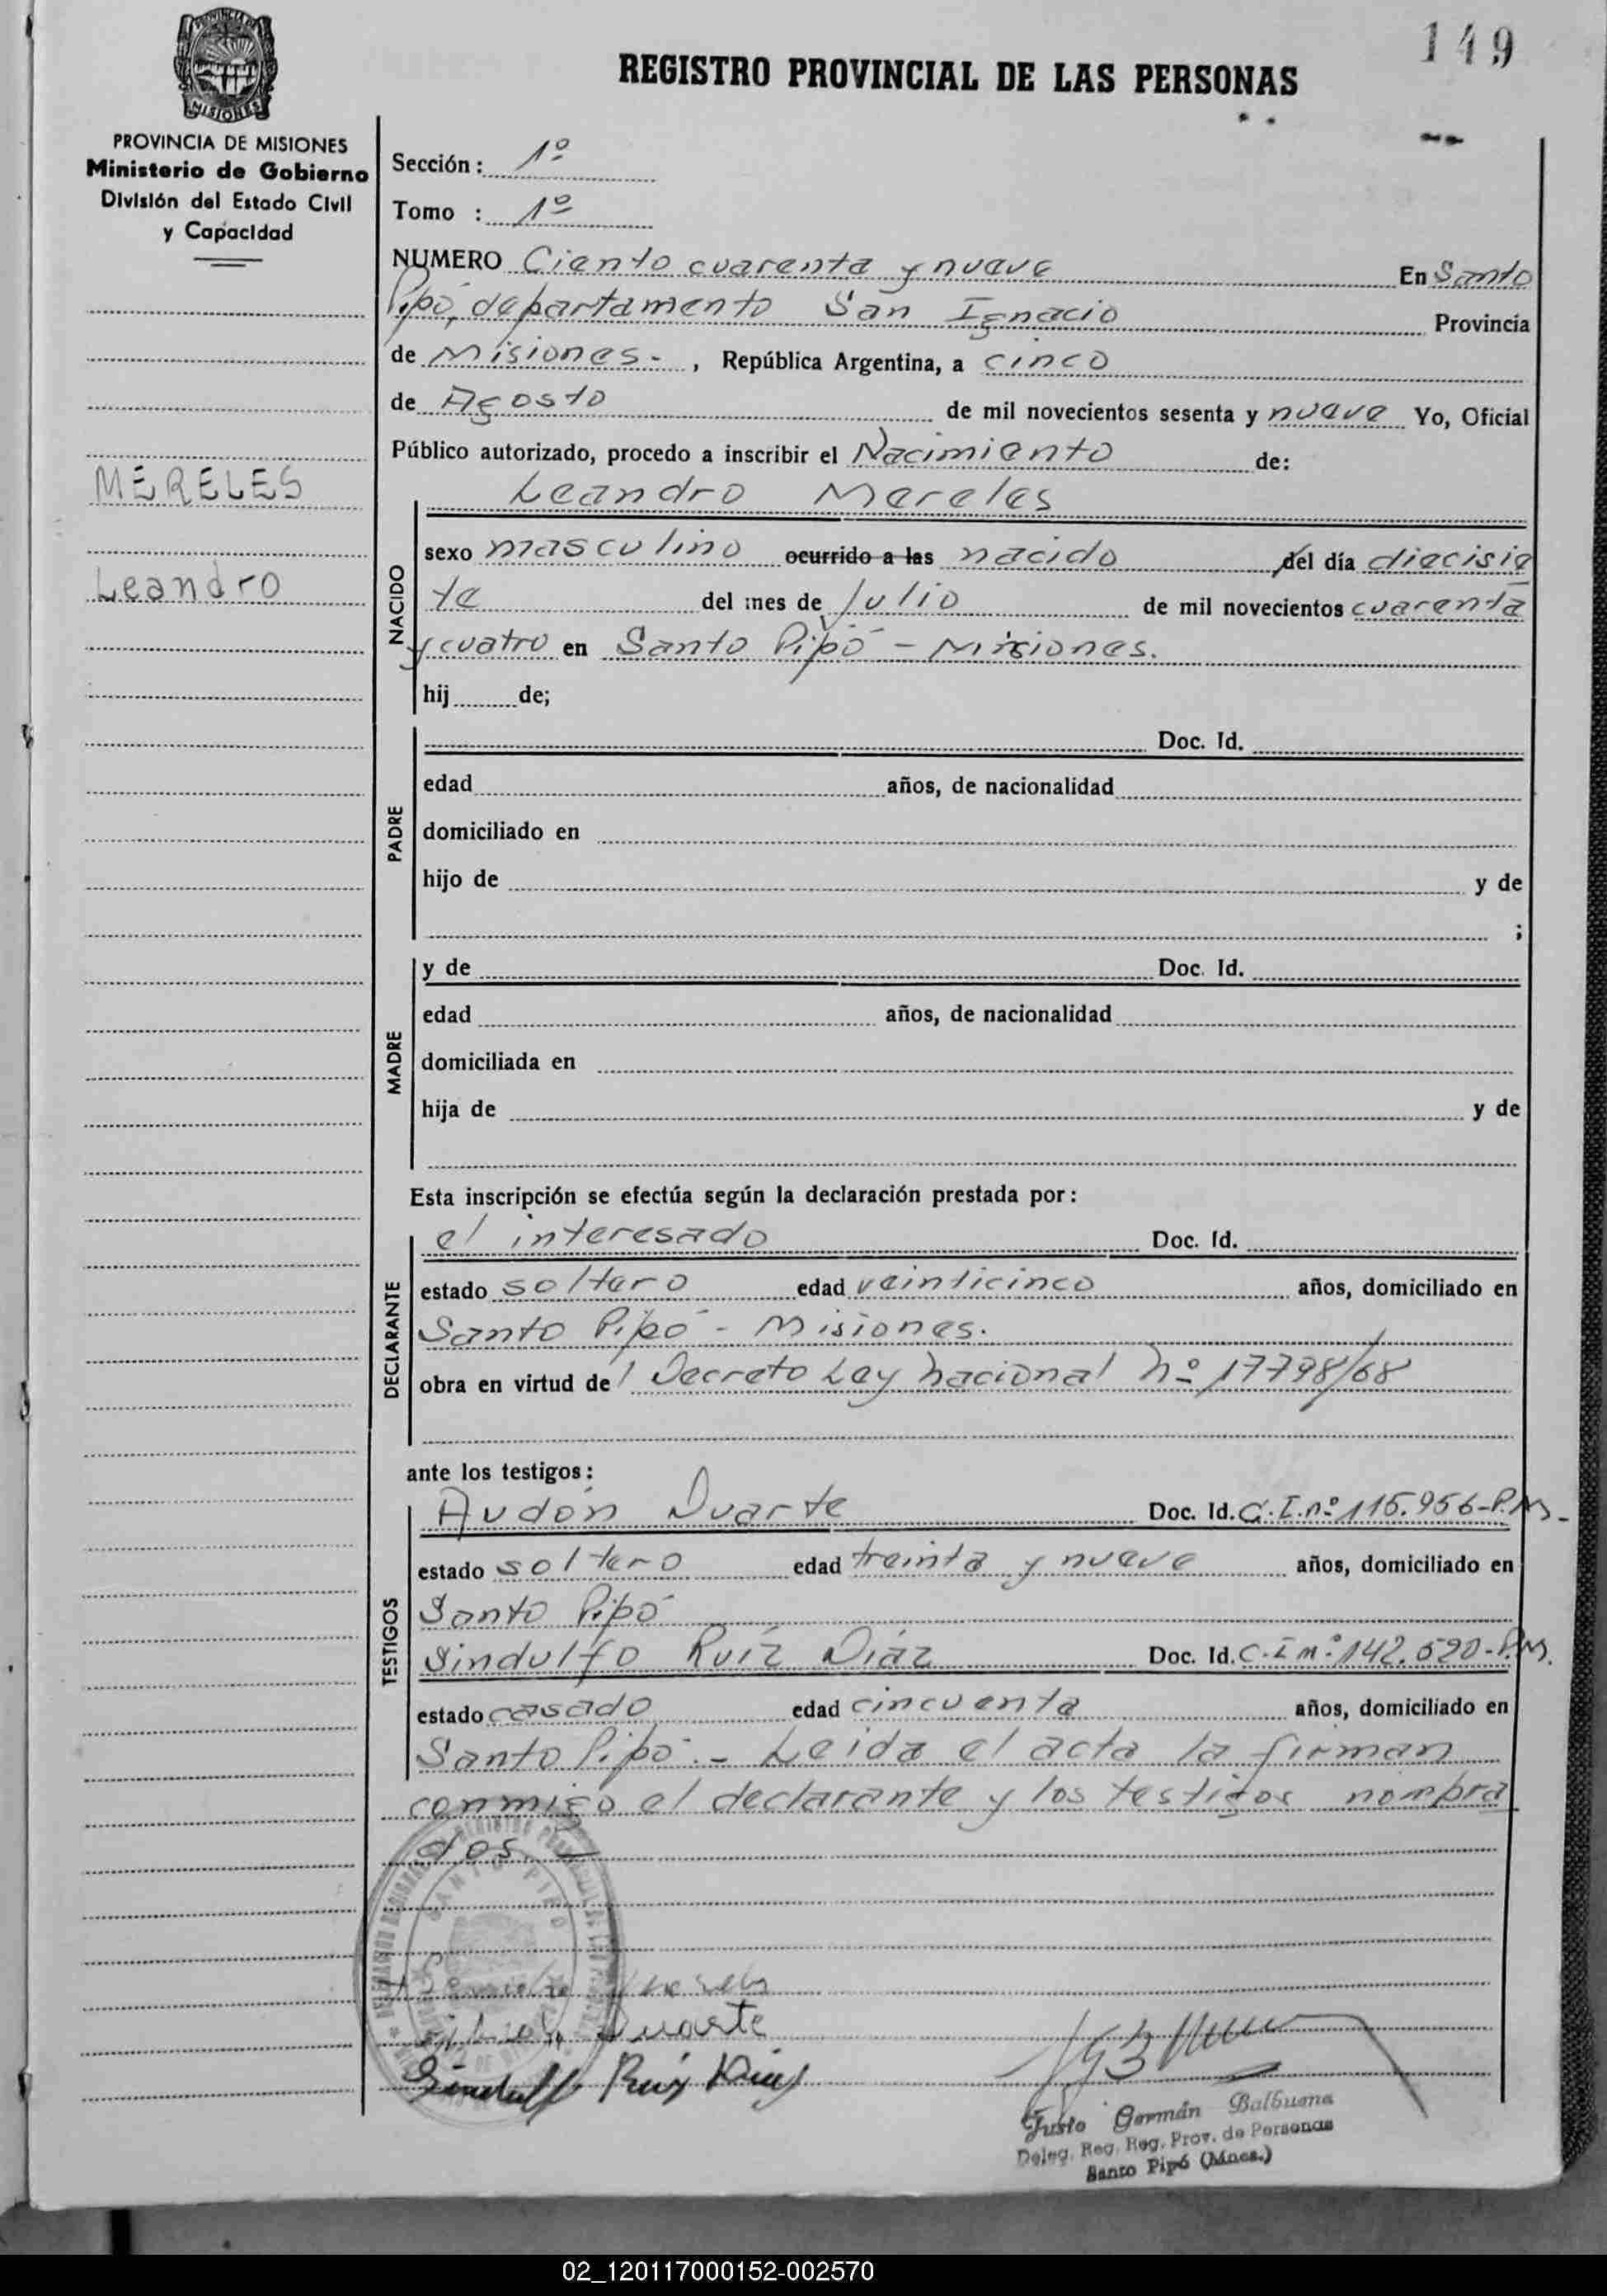 149
REGISTRO PROVINCIAL DE LAS PERSONAS
PROVINCIA DE MISIONES
MISIONES
PROVINCIA DE MISIONES
Ministerio de Gobierno
División del Estado Civil
y Capacidad
MERELES
Leandro
Sección: 1º
Tomo : 1º
NUMERO Ciento cuarenta y nueve En Santo
Pipó, departamento San Ignacio Provincia
de Misiones- , República Argentina, a cinco
de Agosto de mil novecientos sesenta y nueve Yo, Oficial
Público autorizado, procedo a inscribir el Nacimiento de:
Leandro Mereles
NACIDO
sexo masculino ocurrido a las nacido del día diecisie
te del mes de Julio de mil novecientos cuarenta
y cuatro en Santo Pipó - Misiones.
hij de;
PADRE
Doc. Id.
edad años, de nacionalidad
domiciliado en
hijo de y de
;
MADRE
y de Doc. Id.
edad años, de nacionalidad
domiciliada en
hija de y de
Esta inscripción se efectúa según la declaración prestada por:
DECLARANTE
el interesado Doc. Id.
estado soltero edad veinticinco años, domiciliado en
Santo Pipó - Misiones.
obra en virtud del Decreto Ley nacional nº 17798/68
ante los testigos:
TESTIGOS
Audón Duarte Doc. Id. C.I.nº 115.956-P.M-
estado soltero edad treinta y nueve años, domiciliado en
Santo Pipó
Sindulfo Ruíz Díaz Doc. Id. C.I nº 142.520-P.M.
estado casado edad cincuenta años, domiciliado en
Santo Pipó.- Leida el acta la firman
conmigo el declarante y los testigos nombra
dos -
SANTO PIPO
Duarte
Sindulfo Ruiz Diaz
Justo Germán Balbuena
Deleg. Reg. Reg. Prov. de Personas
Santo Pipó (Mnes.)
02_120117000152-002570